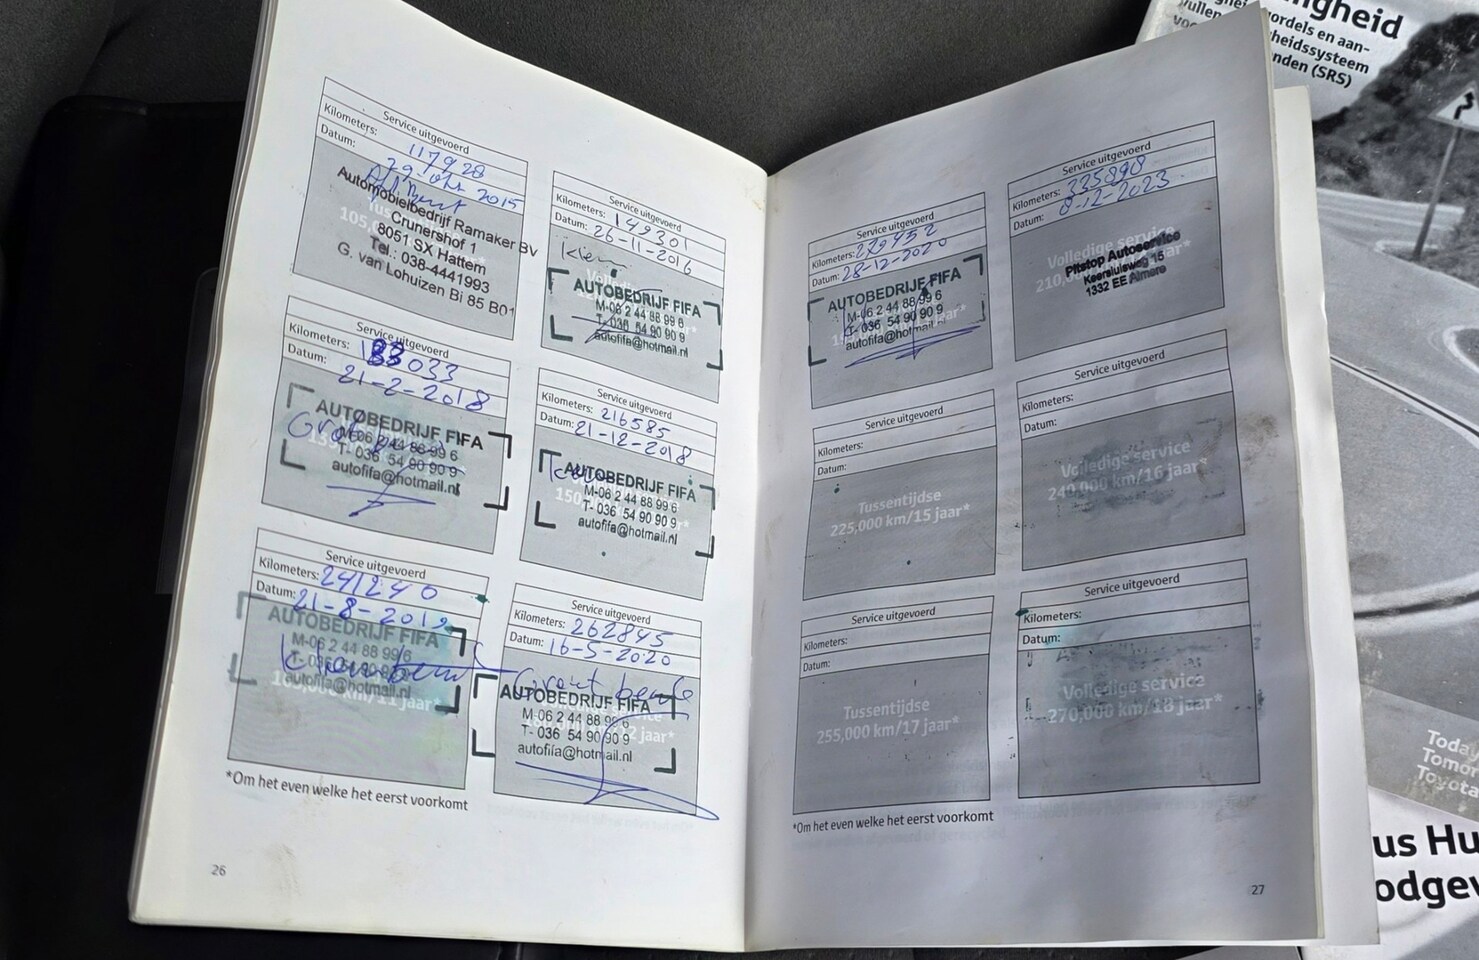 Service uitgevoerd
Kilometers: 117928
Datum: 29 okt 2015
Automobielbedrijf Ramaker BV
Crunershof 1
8051 SX Hattem
Tel.: 038-4441993
G. van Lohuizen Bi 85 B01
Service uitgevoerd
Kilometers: 149301
Datum: 26-11-2016
Klein
AUTOBEDRIJF FIFA
M-06 2 44 88 99 6
T- 036 54 90 90 9
autofifa@hotmail.nl
Service uitgevoerd
Kilometers: 183033
Datum: 21-2-2018
AUTOBEDRIJF FIFA
M-06 2 44 88 99 6
T- 036 54 90 90 9
autofifa@hotmail.nl
Service uitgevoerd
Kilometers: 216585
Datum: 21-12-2018
AUTOBEDRIJF FIFA
M-06 2 44 88 99 6
T- 036 54 90 90 9
autofifa@hotmail.nl
Service uitgevoerd
Kilometers: 241240
Datum: 21-8-2019
AUTOBEDRIJF FIFA
M-06 2 44 88 99 6
T- 036 54 90 90 9
autofifa@hotmail.nl
km/11 jaar*
Service uitgevoerd
Kilometers: 262845
Datum: 16-5-2020
Groot beurt
AUTOBEDRIJF FIFA
M-06 2 44 88 99 6
T- 036 54 90 90 9
autofifa@hotmail.nl
*Om het even welke het eerst voorkomt
26
Service uitgevoerd
Kilometers: 279452
Datum: 28-12-2020
AUTOBEDRIJF FIFA
M-06 2 44 88 99 6
T- 036 54 90 90 9
autofifa@hotmail.nl
Service uitgevoerd
Kilometers: 335898
Datum: 8-12-2023
Volledige service
210,000
Pitstop Autoservice
Keersluisweg 15
1332 EE Almere
Service uitgevoerd
Kilometers:
Datum:
Tussentijdse
225,000 km/15 jaar*
Service uitgevoerd
Kilometers:
Datum:
Volledige service
240,000 km/16 jaar*
Service uitgevoerd
Kilometers:
Datum:
Tussentijdse
255,000 km/17 jaar*
Service uitgevoerd
Kilometers:
Datum:
Volledige service
270,000 km/18 jaar*
*Om het even welke het eerst voorkomt
27
ordels en aan-
heidssysteem
nden (SRS)
Today
Tomor
Toyota
us Hu
odgev